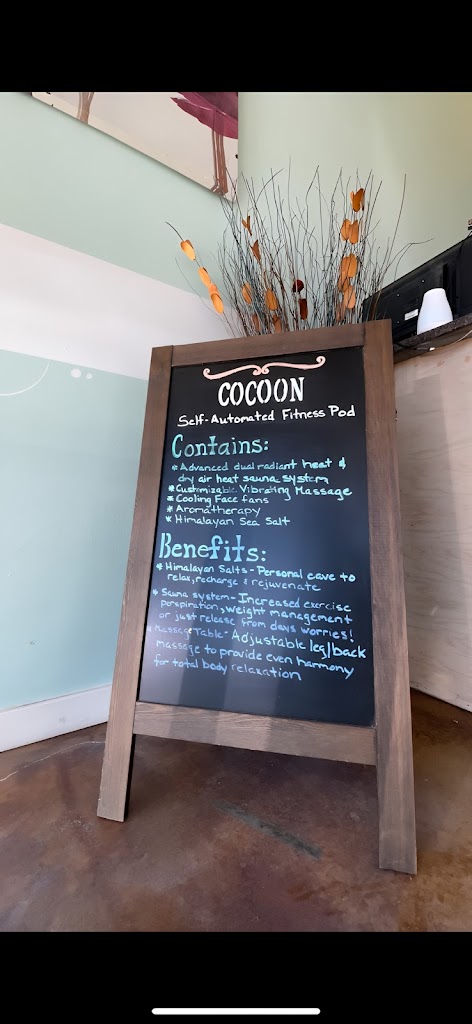 COCOON
Self-Automated Fitness Pod
Contains:
* Advanced dual radiant heat &
dry air heat sauna system
* Customizable Vibrating Massage
* Cooling Face fans
* Aromatherapy
* Himalayan Sea Salt
Benefits:
* Himalayan Salts - Personal cave to
relax, recharge & rejuvenate
* Sauna system - Increased exercise
perspiration, weight management
or just release from days worries!
* Massage Table - Adjustable leg/back
massage to provide even harmony
for total body relaxation